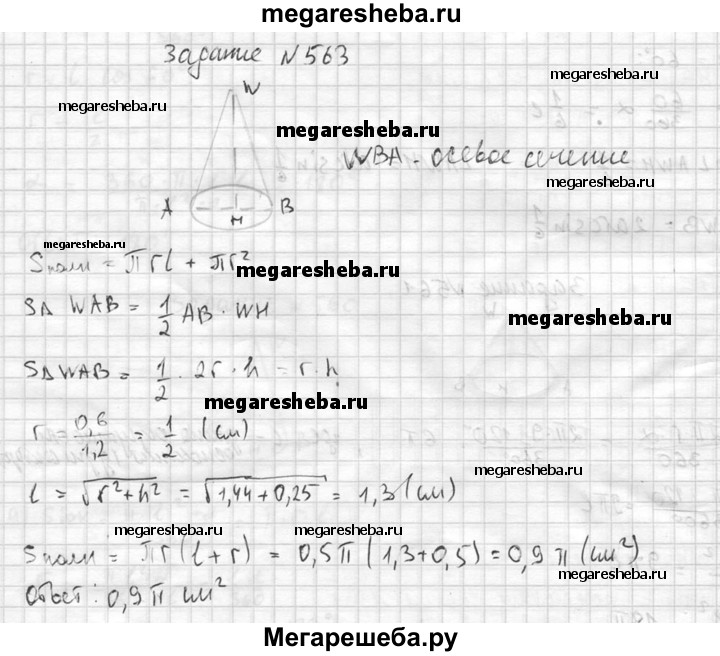 megaresheba.ru
Задание N563
W
megaresheba.ru
megaresheba.ru
megaresheba.ru
WBA - осевое сечение
megaresheba.ru
A
H
B
megaresheba.ru
Sполн = πrl + πr²
megaresheba.ru
S△ WAB = 1/2 AB · WH
megaresheba.ru
S△WAB = 1/2 · 2r · h = r · h
megaresheba.ru
r = 0,6/1,2 = 1/2 (см)
megaresheba.ru
l = √r²+h² = √1,44+0,25 = 1,3 (см)
megaresheba.ru
megaresheba.ru
Sполн = πr(l+r) = 0,5π(1,3+0,5) = 0,9π (см²)
megaresheba.ru
Ответ: 0,9π см²
Мегарешеба.ру